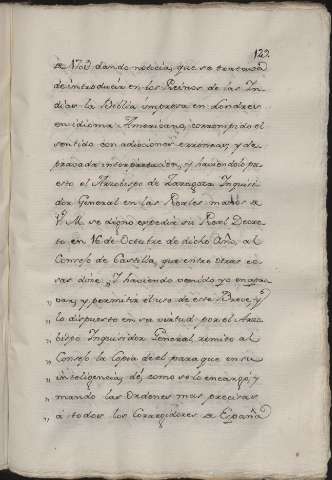 122.
de 1709 dando noticia, que se trataba
de introducir en los Reinos de las In-
dias la Biblia impresa en Londres
en idioma Americano, corrompido el
sentido con adiciones erroneas, y de-
pravada interpretacion, y haviendolo pu-
esto el Arzobispo de Zaragoza Inquisi-
dor General en las Reales manos de
V. M. se digno expedir su Real Decre-
to en 16 de Octubre de dicho Año, al
Consejo de Castilla, que entre otras co-
sas dice: Y haviendo venido yo en
y permitir el uso de este Breve, y
" lo dispuesto en su virtud por el Arzo-
" bispo Inquisidor General, remito al
" Consejo la Copia de el para que en su
" inteligencia dé, como se lo encargo, y
" mando las Ordenes mas precisas
" á todos los Corregidores de España